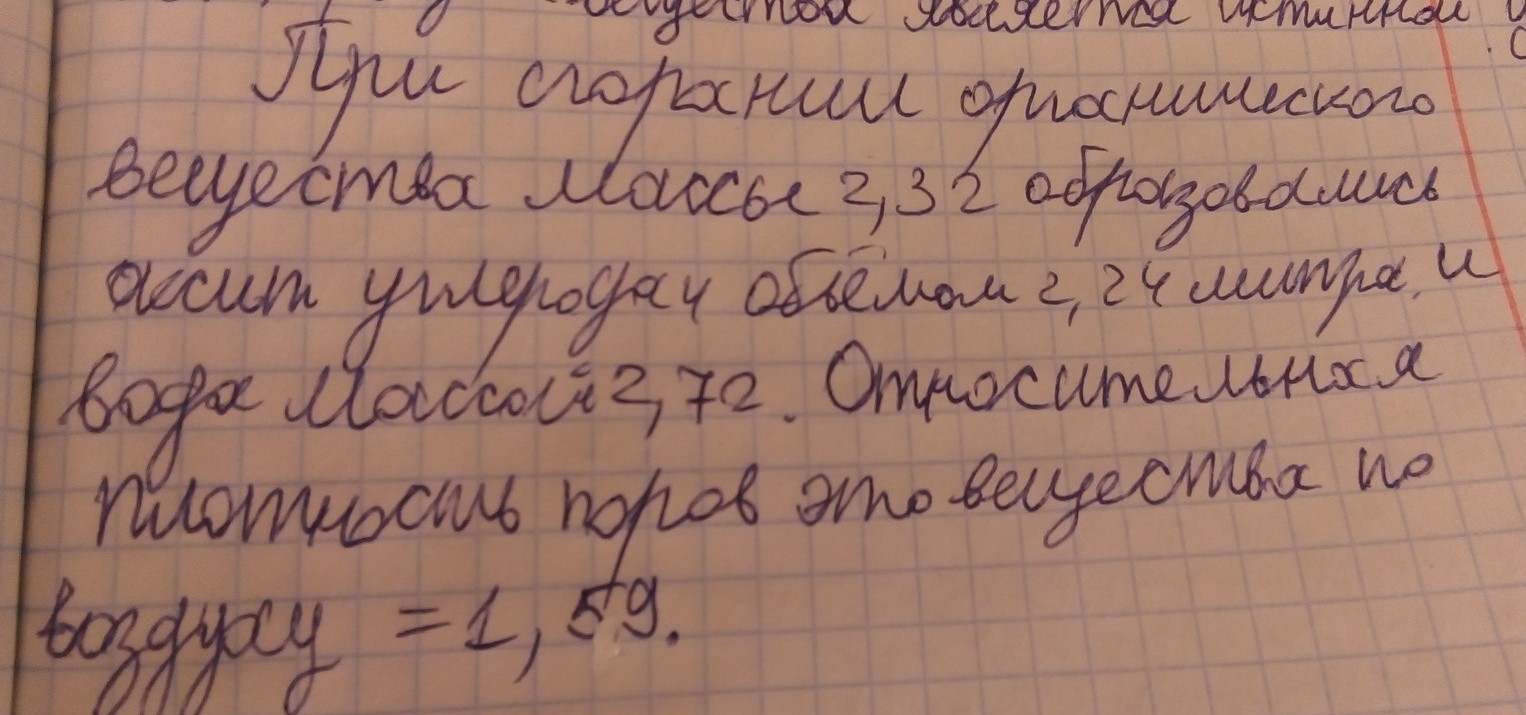 вещества является истинной
При сгорании органического
вещества массы 2,3 г образовались
оксит углерода 4 объёмом 2,24 литра, и
вода массой 2,7г. Относительная
плотность поров это вещества по
воздуху = 1,59.